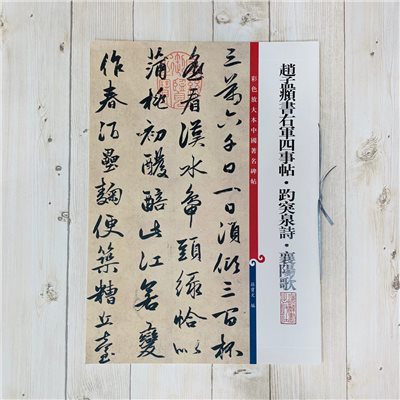 趙孟頫書右軍四事帖·趵突泉詩·襄陽歌
彩色放大本中國著名碑帖
孫寶文 編
三萬六千日一日須傾三百杯
遙看漢水鴨頭綠恰似
蒲桃初醱醅此江若變
作春酒壘麴便築糟丘臺